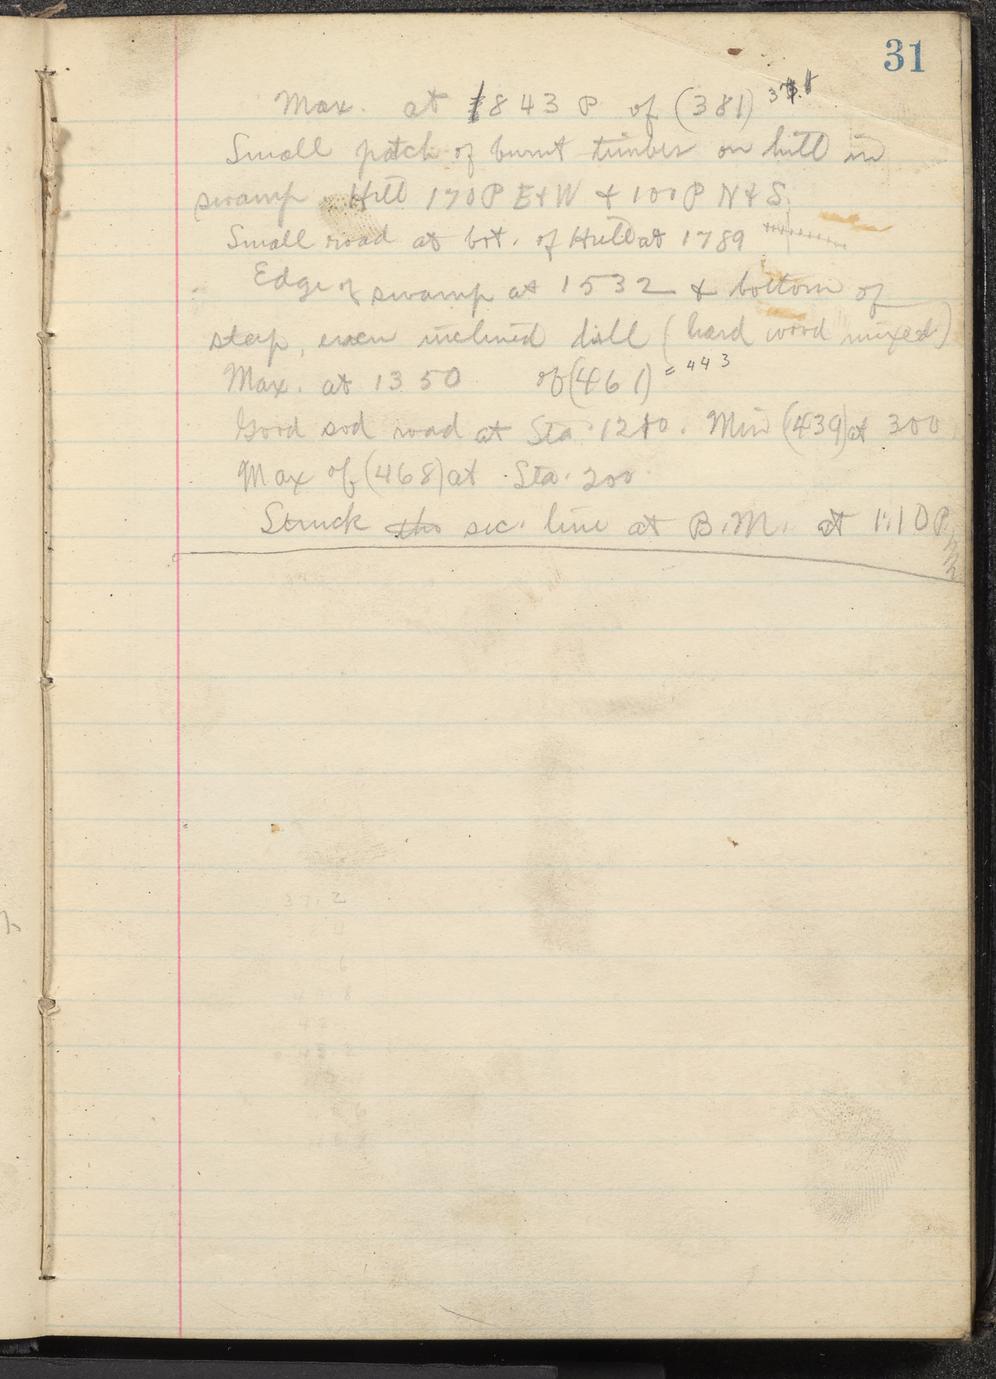 31
Max. at 1843 P of (381)
Small patch of burnt timber on hill in
swamp. Hill 170 P E & W & 100 P N & S.
Small road at bot. of Hill at 1789
Edge of swamp at 1532 & bottom of
steep, even inclined hill (hard wood mixed)
Max. at 1350 of (461) = 443
Good sod road at Sta. 1210. Min (439) at 300
Max of (468) at Sta. 200
Struck the sec. line at B.M. at 1:10 P.M.
37.2